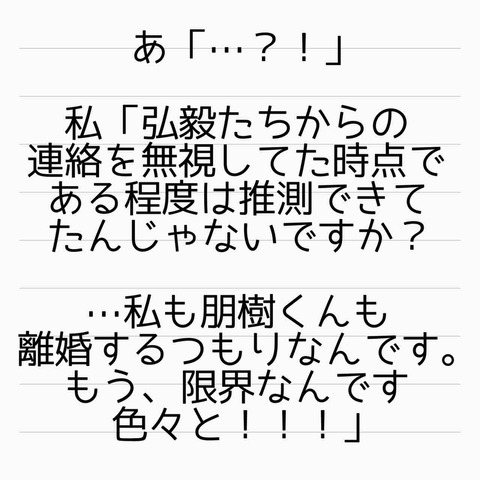 あ「…？！」
私「弘毅たちからの
連絡を無視してた時点で
ある程度は推測できて
たんじゃないですか？
…私も朋樹くんも
離婚するつもりなんです。
もう、限界なんです
色々と！！！」